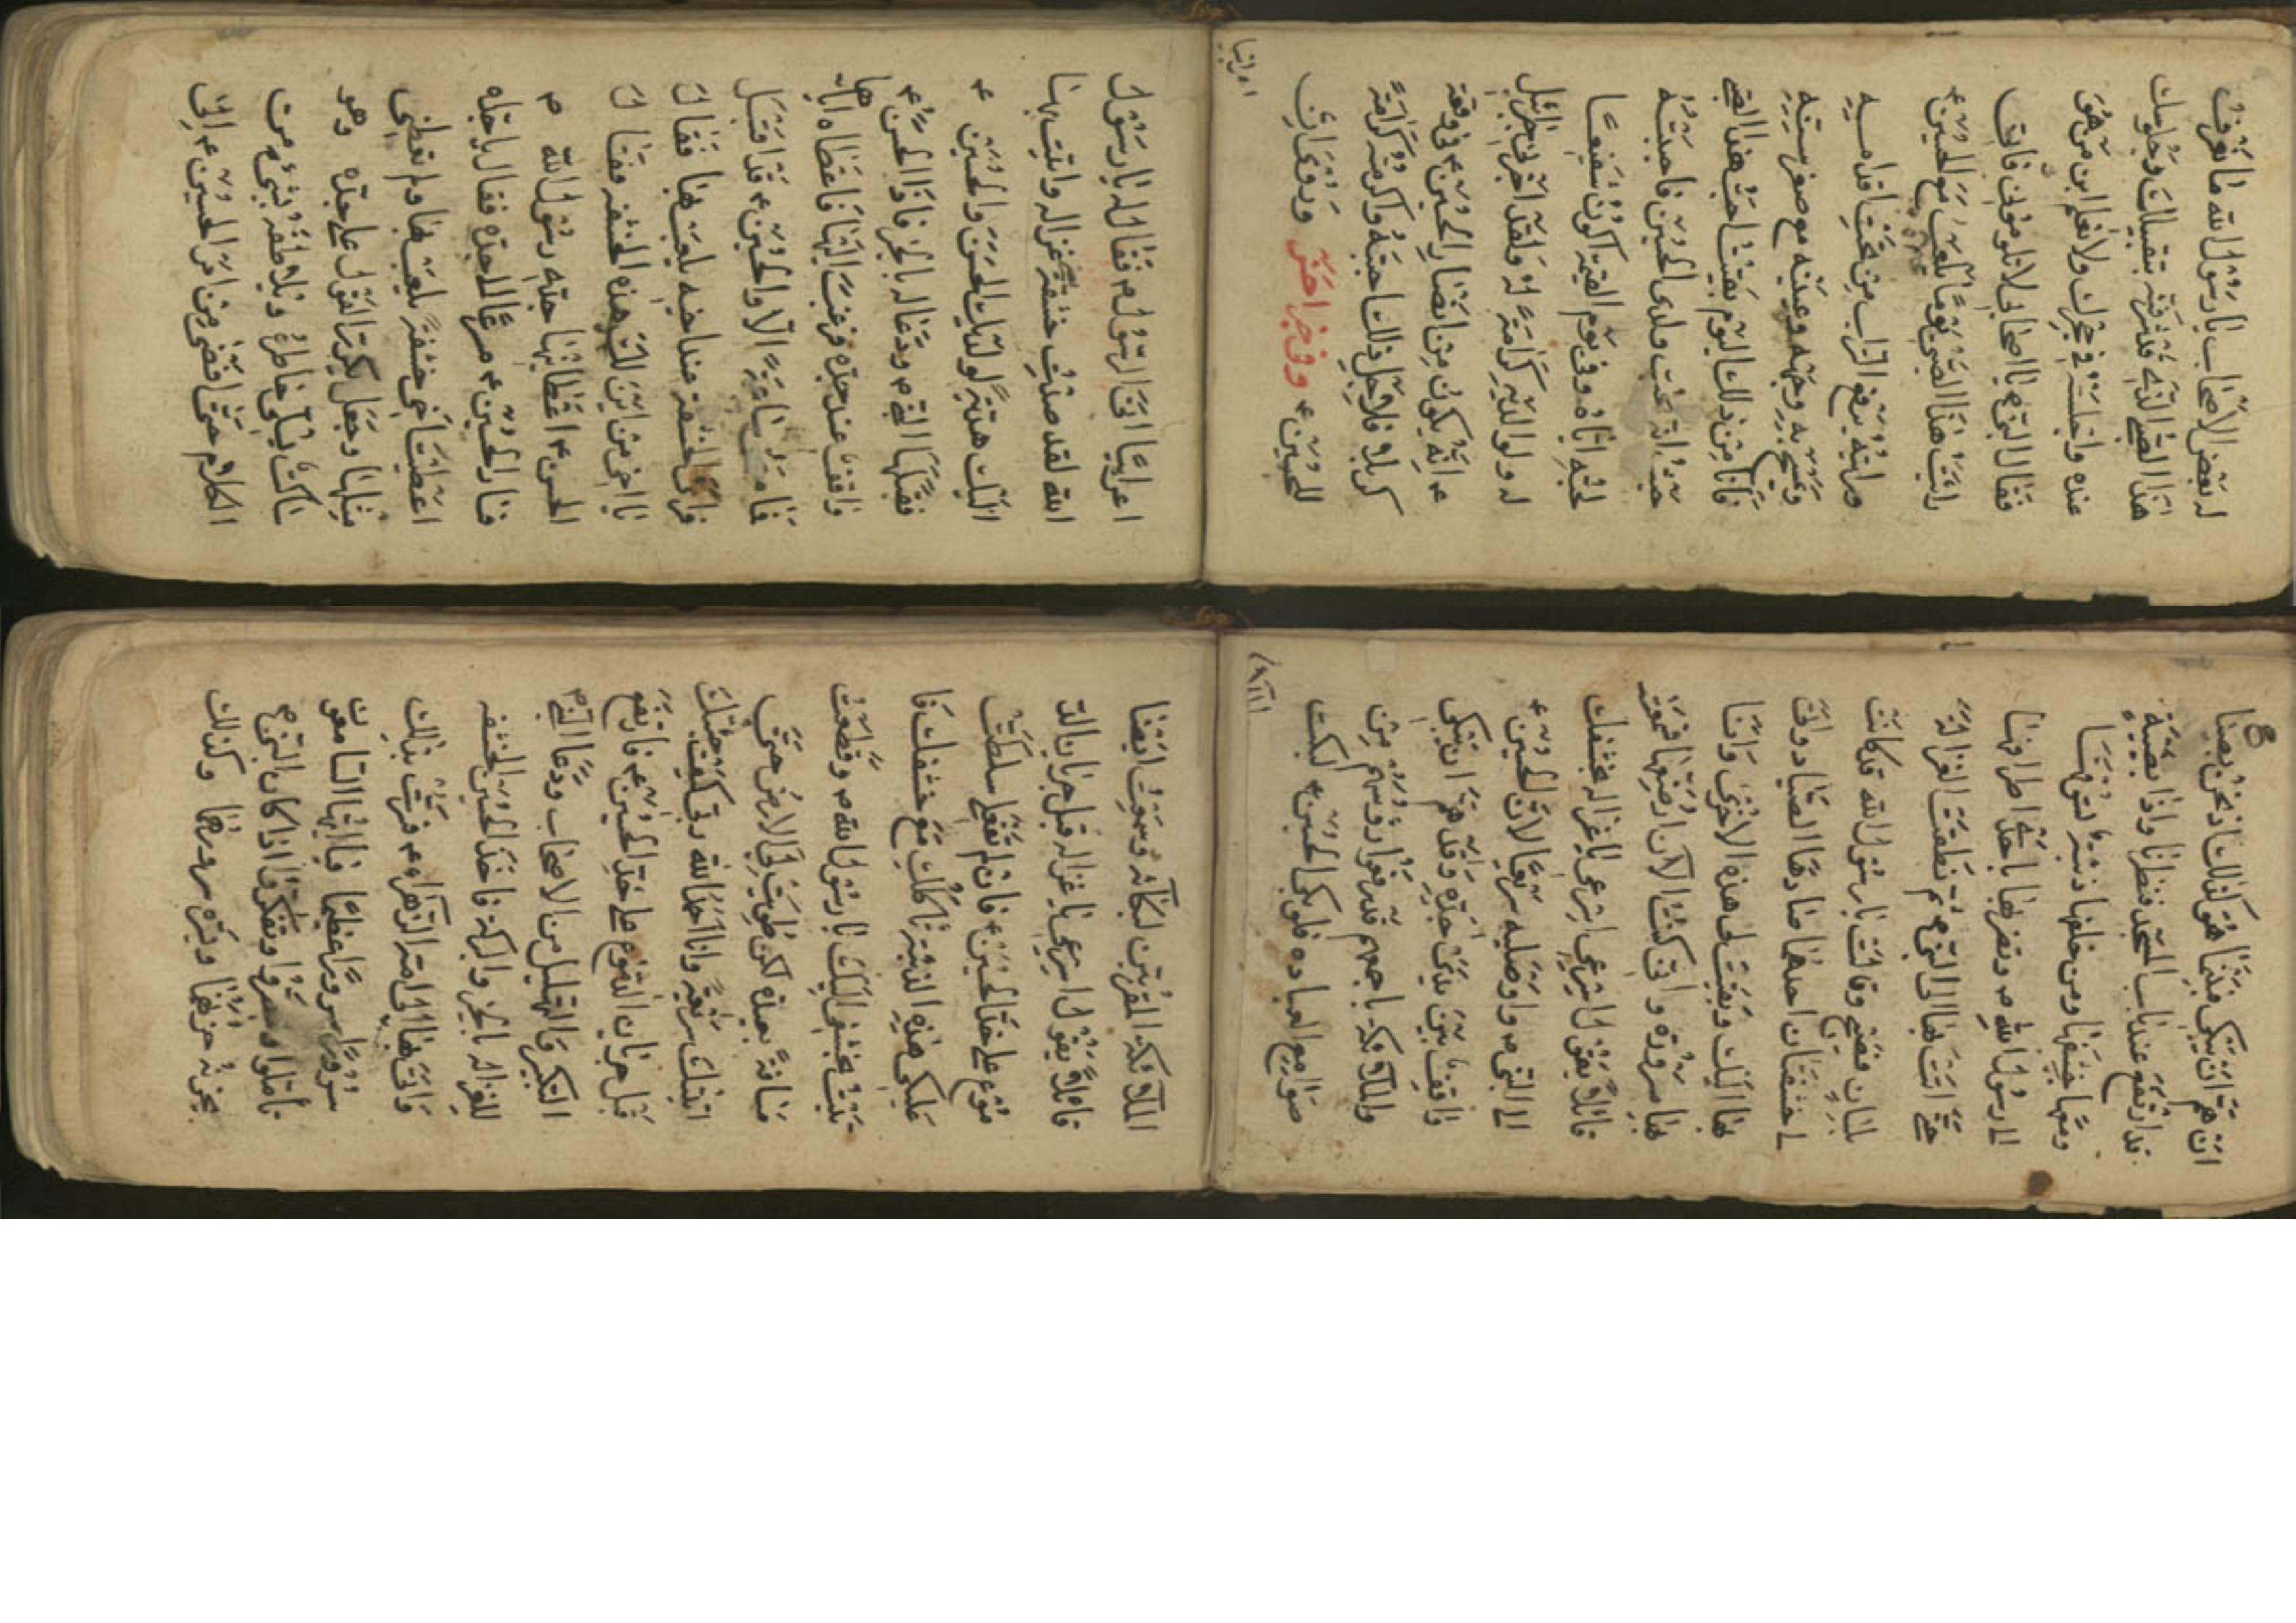 له بعض الاصحاب يا رسول الله ما نعرف
هذا الصبي الذي قد شرفته بتقبيلك وجلوسك
عنده واجلسته في حجرك ولا نعلم ابن من هو
فقال النبي ص يا اصحابي لا تلوموني فاني
رايت هذا الصبي يوما يلعب مع الحسين ع
ورايته يرفع التراب من تحت اقدامه
ويمسح به وجهه وعينيه مع صغر سنه
فانا من ذلك اليوم بقيت احب هذا الصبي
حيث انه يحب ولدي الحسين فاحببته
لحبه اياه وفي يوم القيمة اكون شفيعا
له ولوالديه كرامة له ولقد اخبرني جبرائيل
ع انه يكون من انصار الحسين ع في وقعة
كربلا فلاجل ذلك احببته واكرمته كرامة
للحسين ع وفي خبر اخر وروي ان
اعرابيا
اعرابيا اتى الرسول ص فقال له يا رسول
الله لقد صدت خشفة غزاله واتيت بها
اليك هدية لولديك الحسن والحسين ع
فقبلها النبي ص ودعا له بالخير فاذا الحسن ع
واقف عند جده فرغب اليها فاعطاه اياها
فما مضى ساعة الا والحسين ع قد اقبل
فراى الخشفة عند اخيه يلعب بها فقال
يا اخي من اين لك هذه الخشفه فقال
الحسن ع اعطانيها جدي رسول الله ص
فسار الحسين ع مسرعا الى جده فقال يا جداه
اعطيت اخي خشفة يلعب بها ولم تعطني
مثلها وجعل يكرر القول على جده وهو
ساكت يسلي خاطره ويلاطفه بشيء من
الكلام حتى افضى من امر الحسين ع الى
ان هم ان يبكي فبينا هو كذلك اذ نحن بصياح
قد ارتفع عند باب المسجد فنظرنا واذا بضبية
ومعها خشفها ومن خلفها ذئبه تسوقها
الى رسول الله ص وتضربها باحد اطرافها
حتى اتت بها الى النبي ص ثم نطقت الغزالة
بلسان فصيح وقالت يا رسول الله قد كانت
لي خشفتان احدهما صادها الصياد واتى
بها اليك وبقيت لي هذه الاخرى وانا
بها مسرورة واني كنت الآن ارضعها فسمعت
قائلا يقول اسرعي اسرعي يا غزاله بخشفك
الى النبي ص واوصليه سريعا لان الحسين ع
واقف بين يدي جده وقد هم ان يبكي
والملائكة باجمعهم قد رفعوا رؤوسهم من
صوامع العباده فلو بكى الحسين ع لبكت
الملائكة
الملائكة المقربين لبكائه وسمعت ايضا
قائلا يقول اسرعي يا غزاله قبل جريان الد
موع على خد الحسين ع فان لم تفعلي سلطت
عليك هذه الذئبة تاكلك مع خشفك فا
تيت بخشفي اليك يا رسول الله ص وقطعت
مسافة بعيدة لكن طويت لي الارض حتى
اتيتك سريعة وانا احمد الله ربي كيف جئتك
قبل جريان الدموع على خد الحسين ع فارتفع
التكبير والتهليل من الاصحاب ودعا النبي ص
للغزاله بالخير والبركة فاخذ الحسين الخشفه
واتى بها الى امه الزهراء ع فسرت بذلك
سرورا عظيما فيا ايها السامعون
تاملوا وتبصروا وتفكروا اذا كان النبي ص
يحزنه حزنهما ويسره سرورهما وكذلك